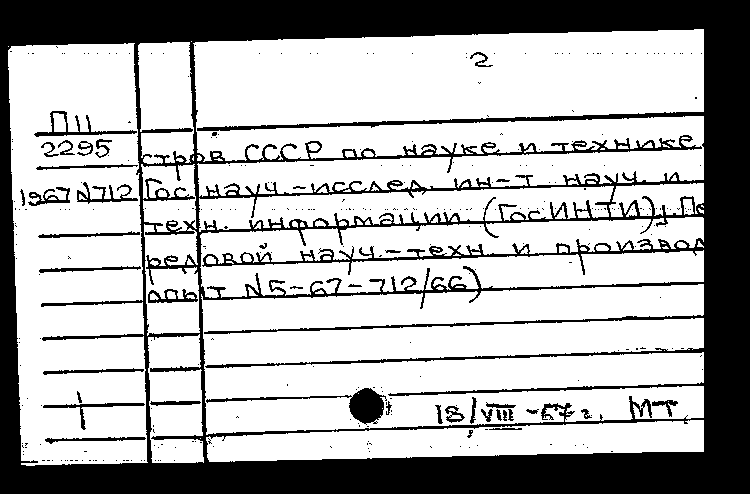 2
П11
2295 стров СССР по науке и технике.
1967 N712 Гос. науч.-исслед. ин-т науч. и
техн. информации. (ГосИНТИ). Пе
редовой науч.-техн. и производ
опыт N5-67-712/66)
1
18/VIII-67г. МТ